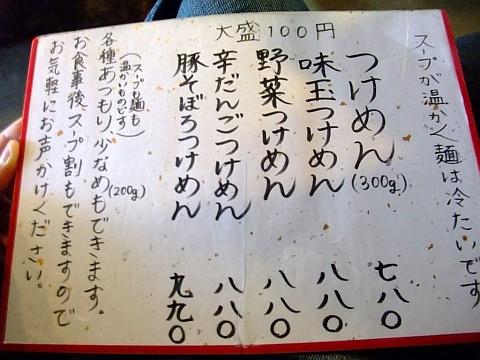 スープが温かく麺は冷たいです
大盛100円
つけめん(300g) 七八〇
味玉つけめん 八八〇
野菜つけめん 八八〇
辛だんごつけめん 八八〇
豚そぼろつけめん 九九〇
(スープも麺も
温かいものです)
各種あつもり、少なめ(200g)もできます。
お食事後、スープ割もできますので
お気軽にお声かけください。